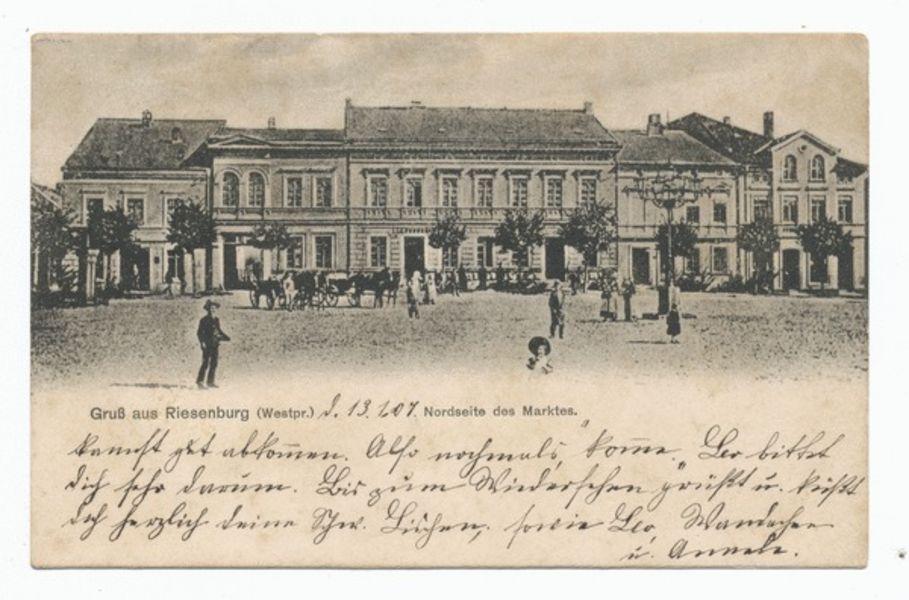 Gruß aus Riesenburg (Westpr.) d. 13.1.07. Nordseite des Marktes.
kannst gut abkommen. Also nochmals „komme“. Leo bittet
dich sehr darum. Bis zum Wiedersehen grüßt u. küßt
dich herzlich deine Schw. Lischen, sowie Leo,
u. Annele.